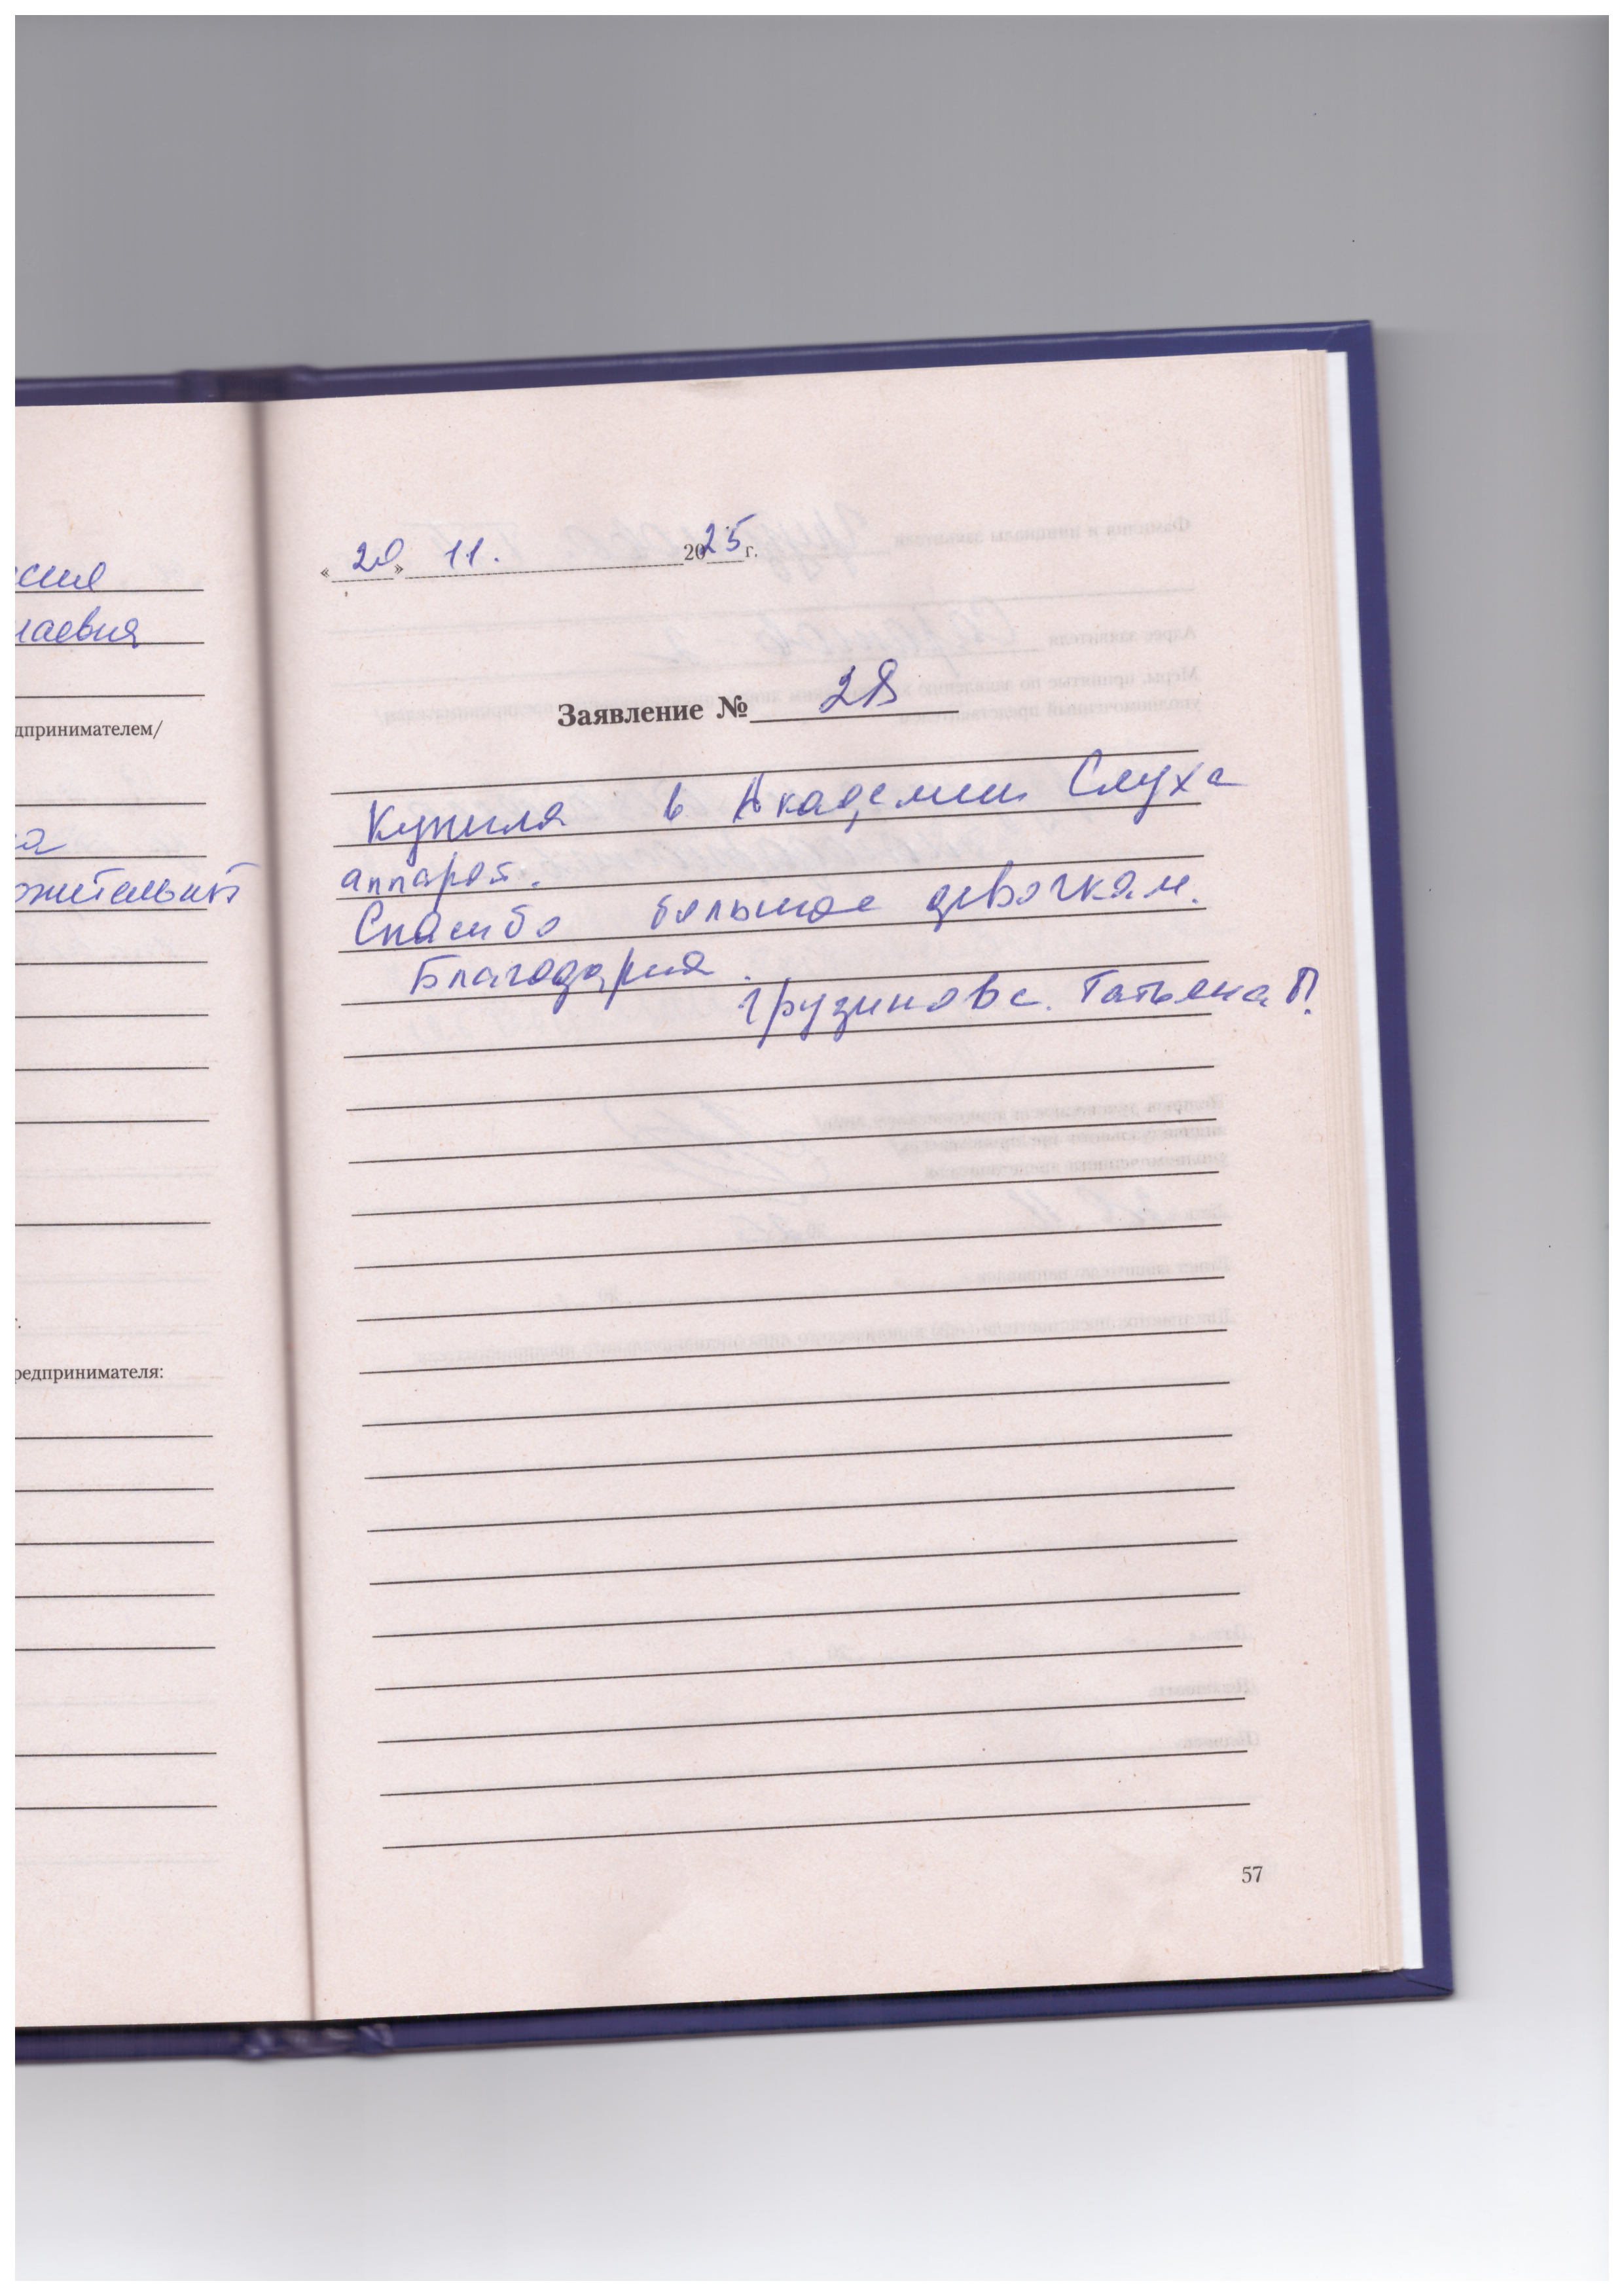 сия
лаевна
дпринимателем/
ва
ожительный
г.
редпринимателя:
« 20 » 11. 2025 г.
Заявление № 28
Купила в Академии Слуха
аппарат.
Спасибо большое девочкам.
Благодарна.
Грузинова. Татьяна П.
57